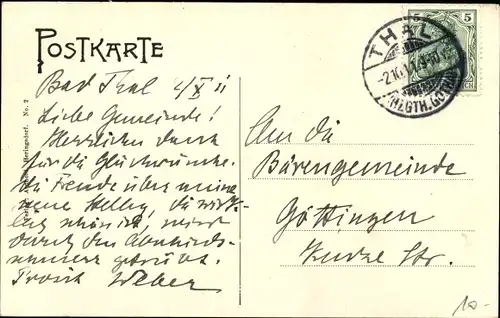 POSTKARTE
Bad Thal 2/X 11
Liebe Gemeinde!
Herzlichen Dank
für die Glückwünsche.
Die Freude über meine
neue Stellg, die wirk-
lich schön ist, wird
durch den Abschieds-
getrübt.
Prosit Weber
An die
Bärengemeinde
Göttingen
Kurze Str.
5 5
THAL
-2.10.11.
(HZGTH. GOTHA)
No. 2
10-